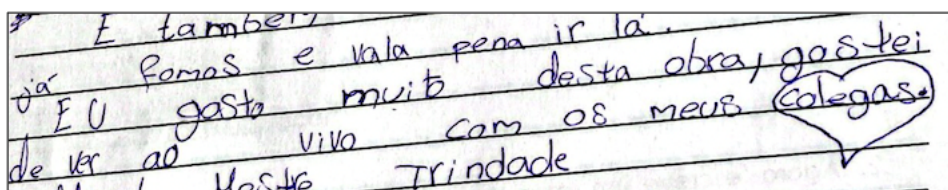 E também
já fomos e vala pena ir lá.
EU gosto muito desta obra, gostei
de ver ao vivo com os meus colegas.
Mostre Trindade